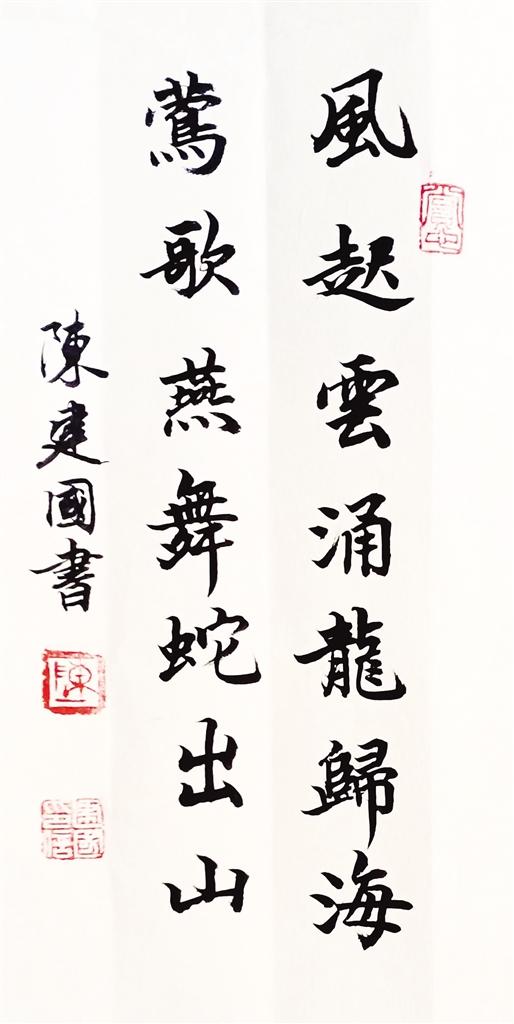 風起雲涌龍歸海
鶯歌燕舞蛇出山
陳建國書
陳